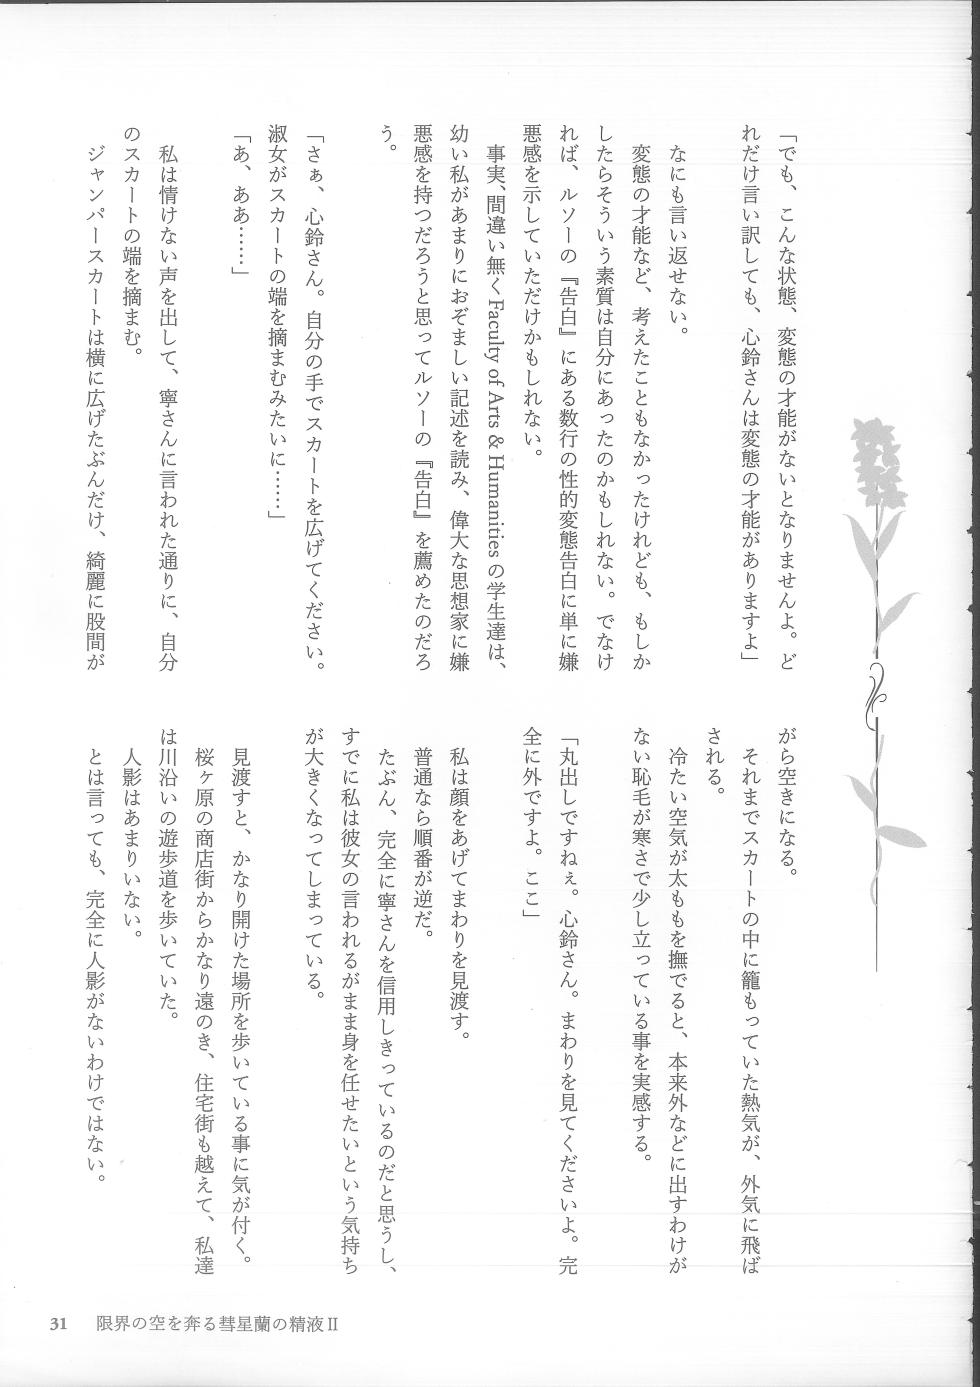 「でも、こんな状態、変態の才能がないとなりませんよ。ど
れだけ言い訳しても、心鈴さんは変態の才能がありますよ」
なにも言い返せない。
変態の才能など、考えたこともなかったけれども、もしか
したらそういう素質は自分にあったのかもしれない。でなけ
れば、ルソーの『告白』にある数行の性的変態告白に単に嫌
悪感を示していただけかもしれない。
事実、間違い無くFaculty of Arts & Humanitiesの学生達は、
幼い私があまりにおぞましい記述を読み、偉大な思想家に嫌
悪感を持つだろうと思ってルソーの『告白』を薦めたのだろ
う。
「さぁ、心鈴さん。自分の手でスカートを広げてください。
淑女がスカートの端を摘まむみたいに……」
「あ、ああ……」
私は情けない声を出して、寧さんに言われた通りに、自分
のスカートの端を摘まむ。
ジャンパースカートは横に広げたぶんだけ、綺麗に股間が
がら空きになる。
それまでスカートの中に籠もっていた熱気が、外気に飛ば
される。
冷たい空気が太ももを撫でると、本来外などに出すわけが
ない恥毛が寒さで少し立っている事を実感する。
「丸出しですねぇ。心鈴さん。まわりを見てくださいよ。完
全に外ですよ。ここ」
私は顔をあげてまわりを見渡す。
普通なら順番が逆だ。
たぶん、完全に寧さんを信用しきっているのだと思うし、
すでに私は彼女の言われるがまま身を任せたいという気持ち
が大きくなってしまっている。
見渡すと、かなり開けた場所を歩いている事に気が付く。
桜ヶ原の商店街からかなり遠のき、住宅街も越えて、私達
は川沿いの遊歩道を歩いていた。
人影はあまりいない。
とは言っても、完全に人影がないわけではない。
31 限界の空を奔る彗星蘭の精液Ⅱ